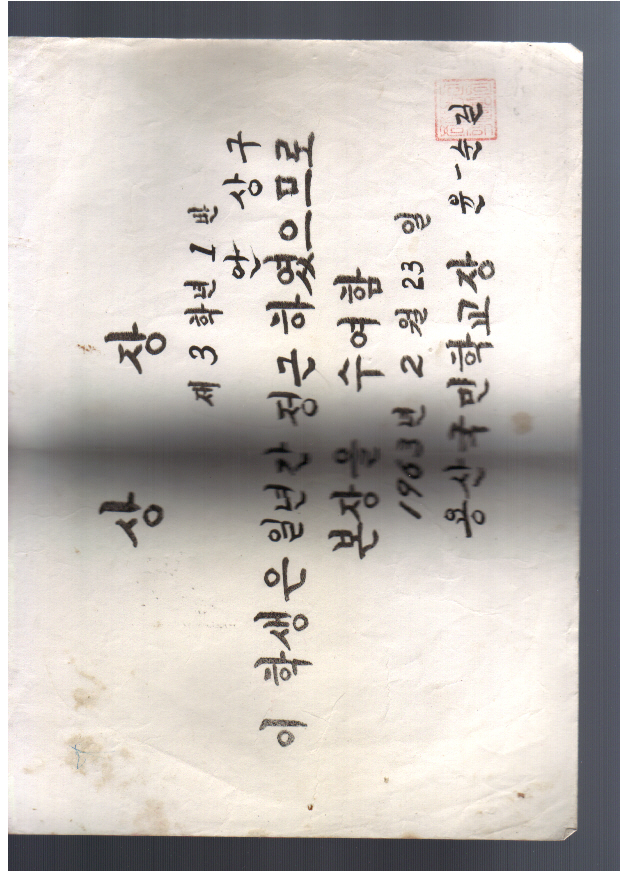 상 장
제 3 학년 1 반
안 상 구
이 학생은 일년간 정근 하였으므로
본장을 수여함
1963년 2 월 23 일
용산국민학교장 윤순길